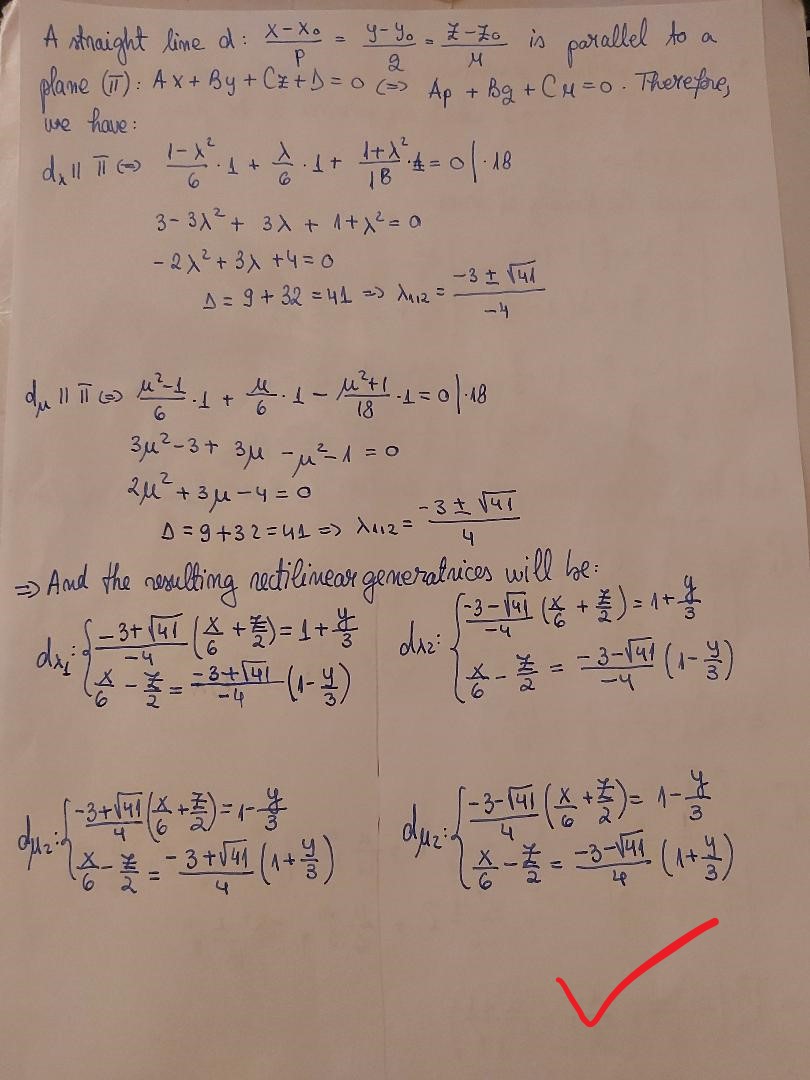 A straight line d: (x-x₀)/p = (y-y₀)/q = (z-z₀)/r is parallel to a
plane (π): Ax + By + Cz + D = 0 (=> Ap + Bq + Cr = 0. Therefore,
we have:
d_λ || π (=> (1-λ²)/6 · 1 + λ/6 · 1 + (1+λ²)/18 · 1 = 0 | · 18
3 - 3λ² + 3λ + 1 + λ² = 0
-2λ² + 3λ + 4 = 0
Δ = 9 + 32 = 41 => λ₁,₂ = (-3 ± √41)/-4
d_μ || π (=> (μ²-1)/6 · 1 + μ/6 · 1 - (μ²+1)/18 · 1 = 0 | · 18
3μ² - 3 + 3μ - μ² - 1 = 0
2μ² + 3μ - 4 = 0
Δ = 9 + 32 = 41 => λ₁,₂ = (-3 ± √41)/4
=> And the resulting rectilinear generatrices will be:
d_λ₁: { (-3+√41)/-4 (x/6 + z/2) = 1 + y/3
x/6 - z/2 = (-3+√41)/-4 (1 - y/3)
d_λ₂: { (-3-√41)/-4 (x/6 + z/2) = 1 + y/3
x/6 - z/2 = (-3-√41)/-4 (1 - y/3)
d_μ₂: { (-3+√41)/4 (x/6 + z/2) = 1 - y/3
x/6 - z/2 = (-3+√41)/4 (1 + y/3)
d_μ₂: { (-3-√41)/4 (x/6 + z/2) = 1 - y/3
x/6 - z/2 = (-3-√41)/4 (1 + y/3)